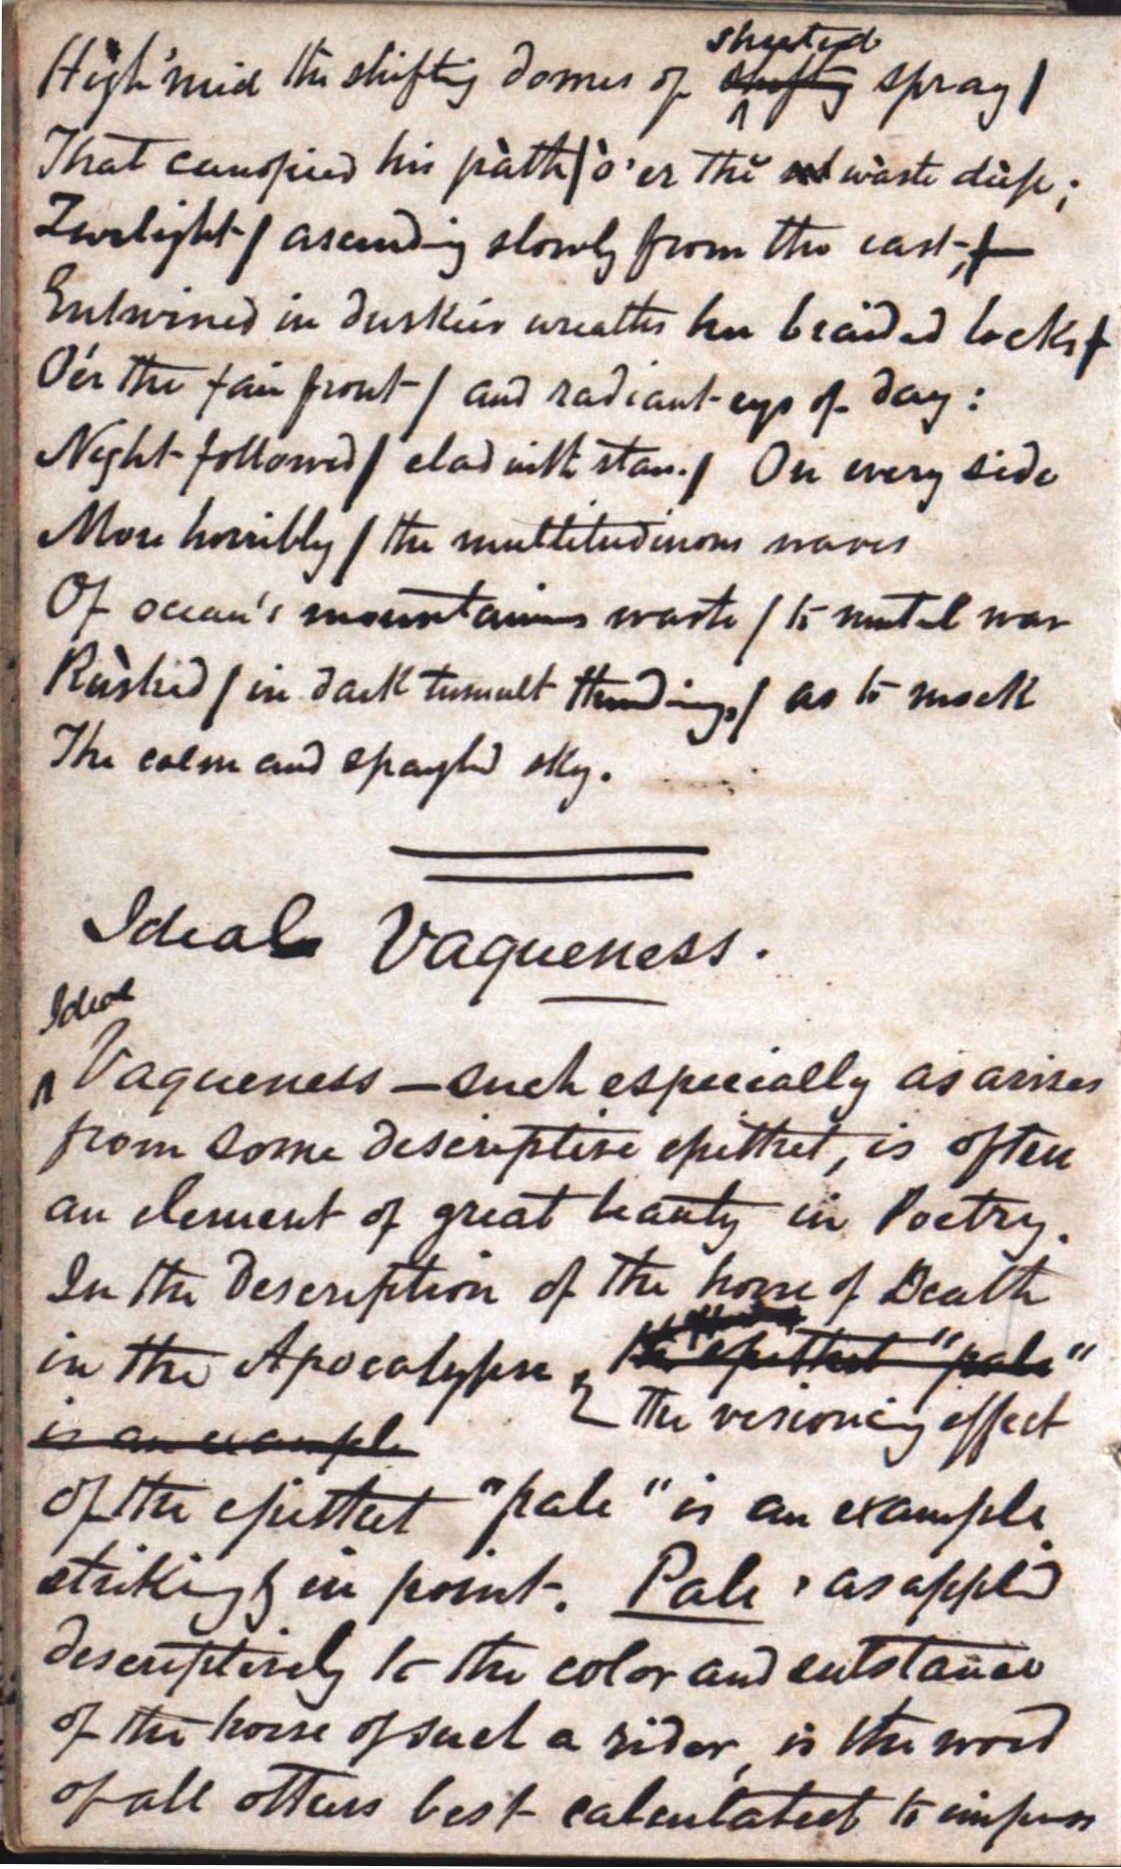 sheeted
High 'mid the shifting domes of shifting spray /
That canopied his path / o'er the waste deep;
Twilight / ascending slowly from the east, /
Entwined in duskier wreaths her braided locks /
O'er the fair front / and radiant eyes of day:
Night followed / clad with stars. / On every side
More horribly / the multitudinous waves
Of ocean's mountainous waste / to mutual war
Rushed / in dark tumult thundering, / as to mock
The calm and spangled sky.
Ideal Vagueness.
Ideal
^ Vagueness — such especially as arises
from some descriptive epithet, is often
an element of great beauty in Poetry.
In the description of the horse of Death
in the Apocalypse, the epithet "pale"
the visioning effect
is an example
of the epithet "pale" is an example
strikingly in point. Pale, as applied
descriptively to the color and substance
of the horse of such a rider, is the word
of all others best calculated to impress